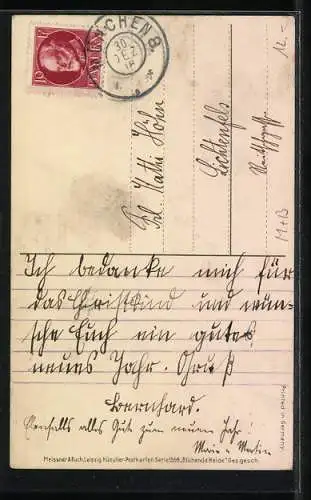 MÜNCHEN 8.
30
DEZ
16
12.-
Frl Kathi Höhn
Lichtenfels
M+B
Ich bedanke mich für
das Christkind und wün-
sche Euch ein gutes
neues Jahr. Gruß
Bernhard.
Ebenfalls alles Gute zum neuen Jahr!
Marie u Martin
Meissner & Buch, Leipzig. Künstler-Postkarten. Serie „Blühende Heide" Ges. gesch.
Printed in Germany.